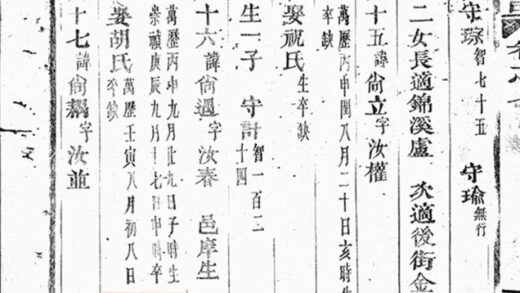 守琮 智七十五 守瑜 無行
二女長適錦溪盧 次適後街金
十五諱尙立字汝權
萬歷丙申閏八月二十日亥時生
卒缺
娶祝氏 生卒缺
生一子 守計 智一百二十四
十六諱尙遇字汝春 邑庠生
萬歷丙申九月廿九日子時生
崇禎庚辰九月十七日申時卒
娶胡氏 萬歷壬寅八月初八日
卒缺
十七諱尙字汝並